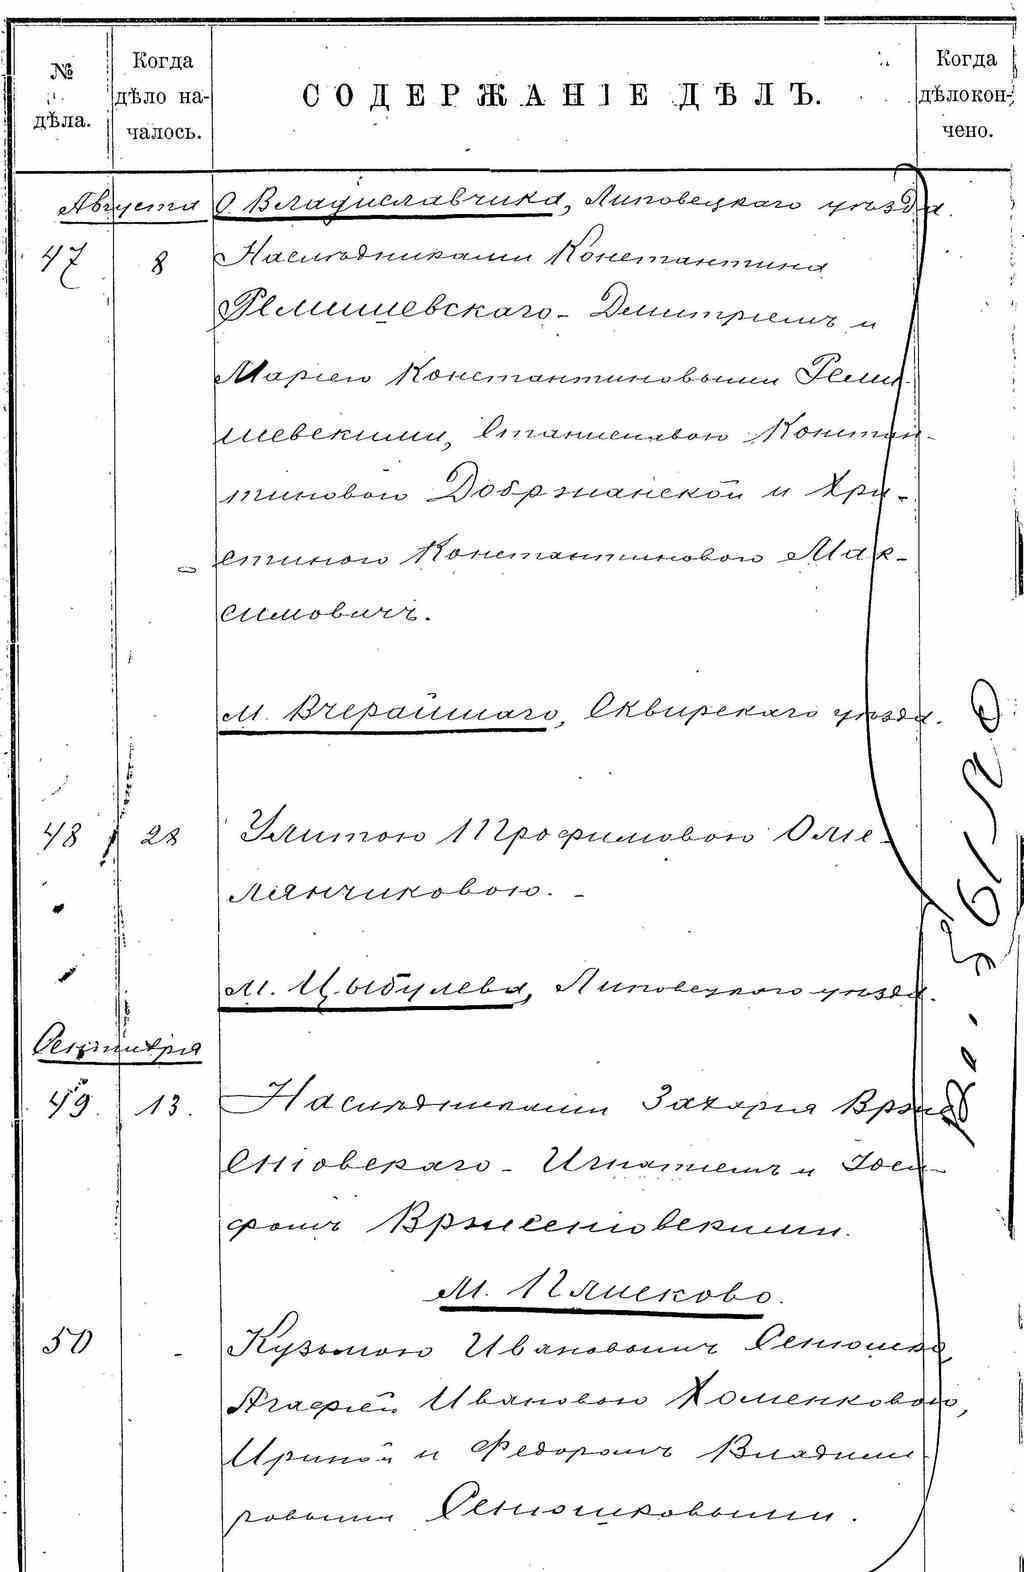 № дѣла.
Когда дѣло на- чалось.
СОДЕРЖАНІЕ ДѢЛЪ.
Когда дѣло кон- чено.
Августа О. Владиславчика, Липовецкаго уѣзда.
47 8 Наслѣдниками Константина
Ремишевскаго - Дмитріемъ и
Маріею Константиновыми Реми-
шевскими, Станиславою Констан-
тиновою Добржанской и Хри-
стиною Константиновою Мак-
симовичъ.
м. Вчерайшаго, Сквирскаго уѣзда.
48 28 Улитою Трофимовою Оме-
лянчиковою. -
м. Цыбулева, Липовецкаго уѣзда.
Сентября
49. 13. Наслѣдниками Захарія Врже
сніовскаго - Игнатіемъ и Іоси-
фомъ Вржесніовскими.
м. Плисково.
50 - Кузьмою Ивановымъ Сенюшко,
Агафіей Ивановою Хоменковою,
Ириной и Федоромъ Влядими-
ровыми Сенюшковыми.